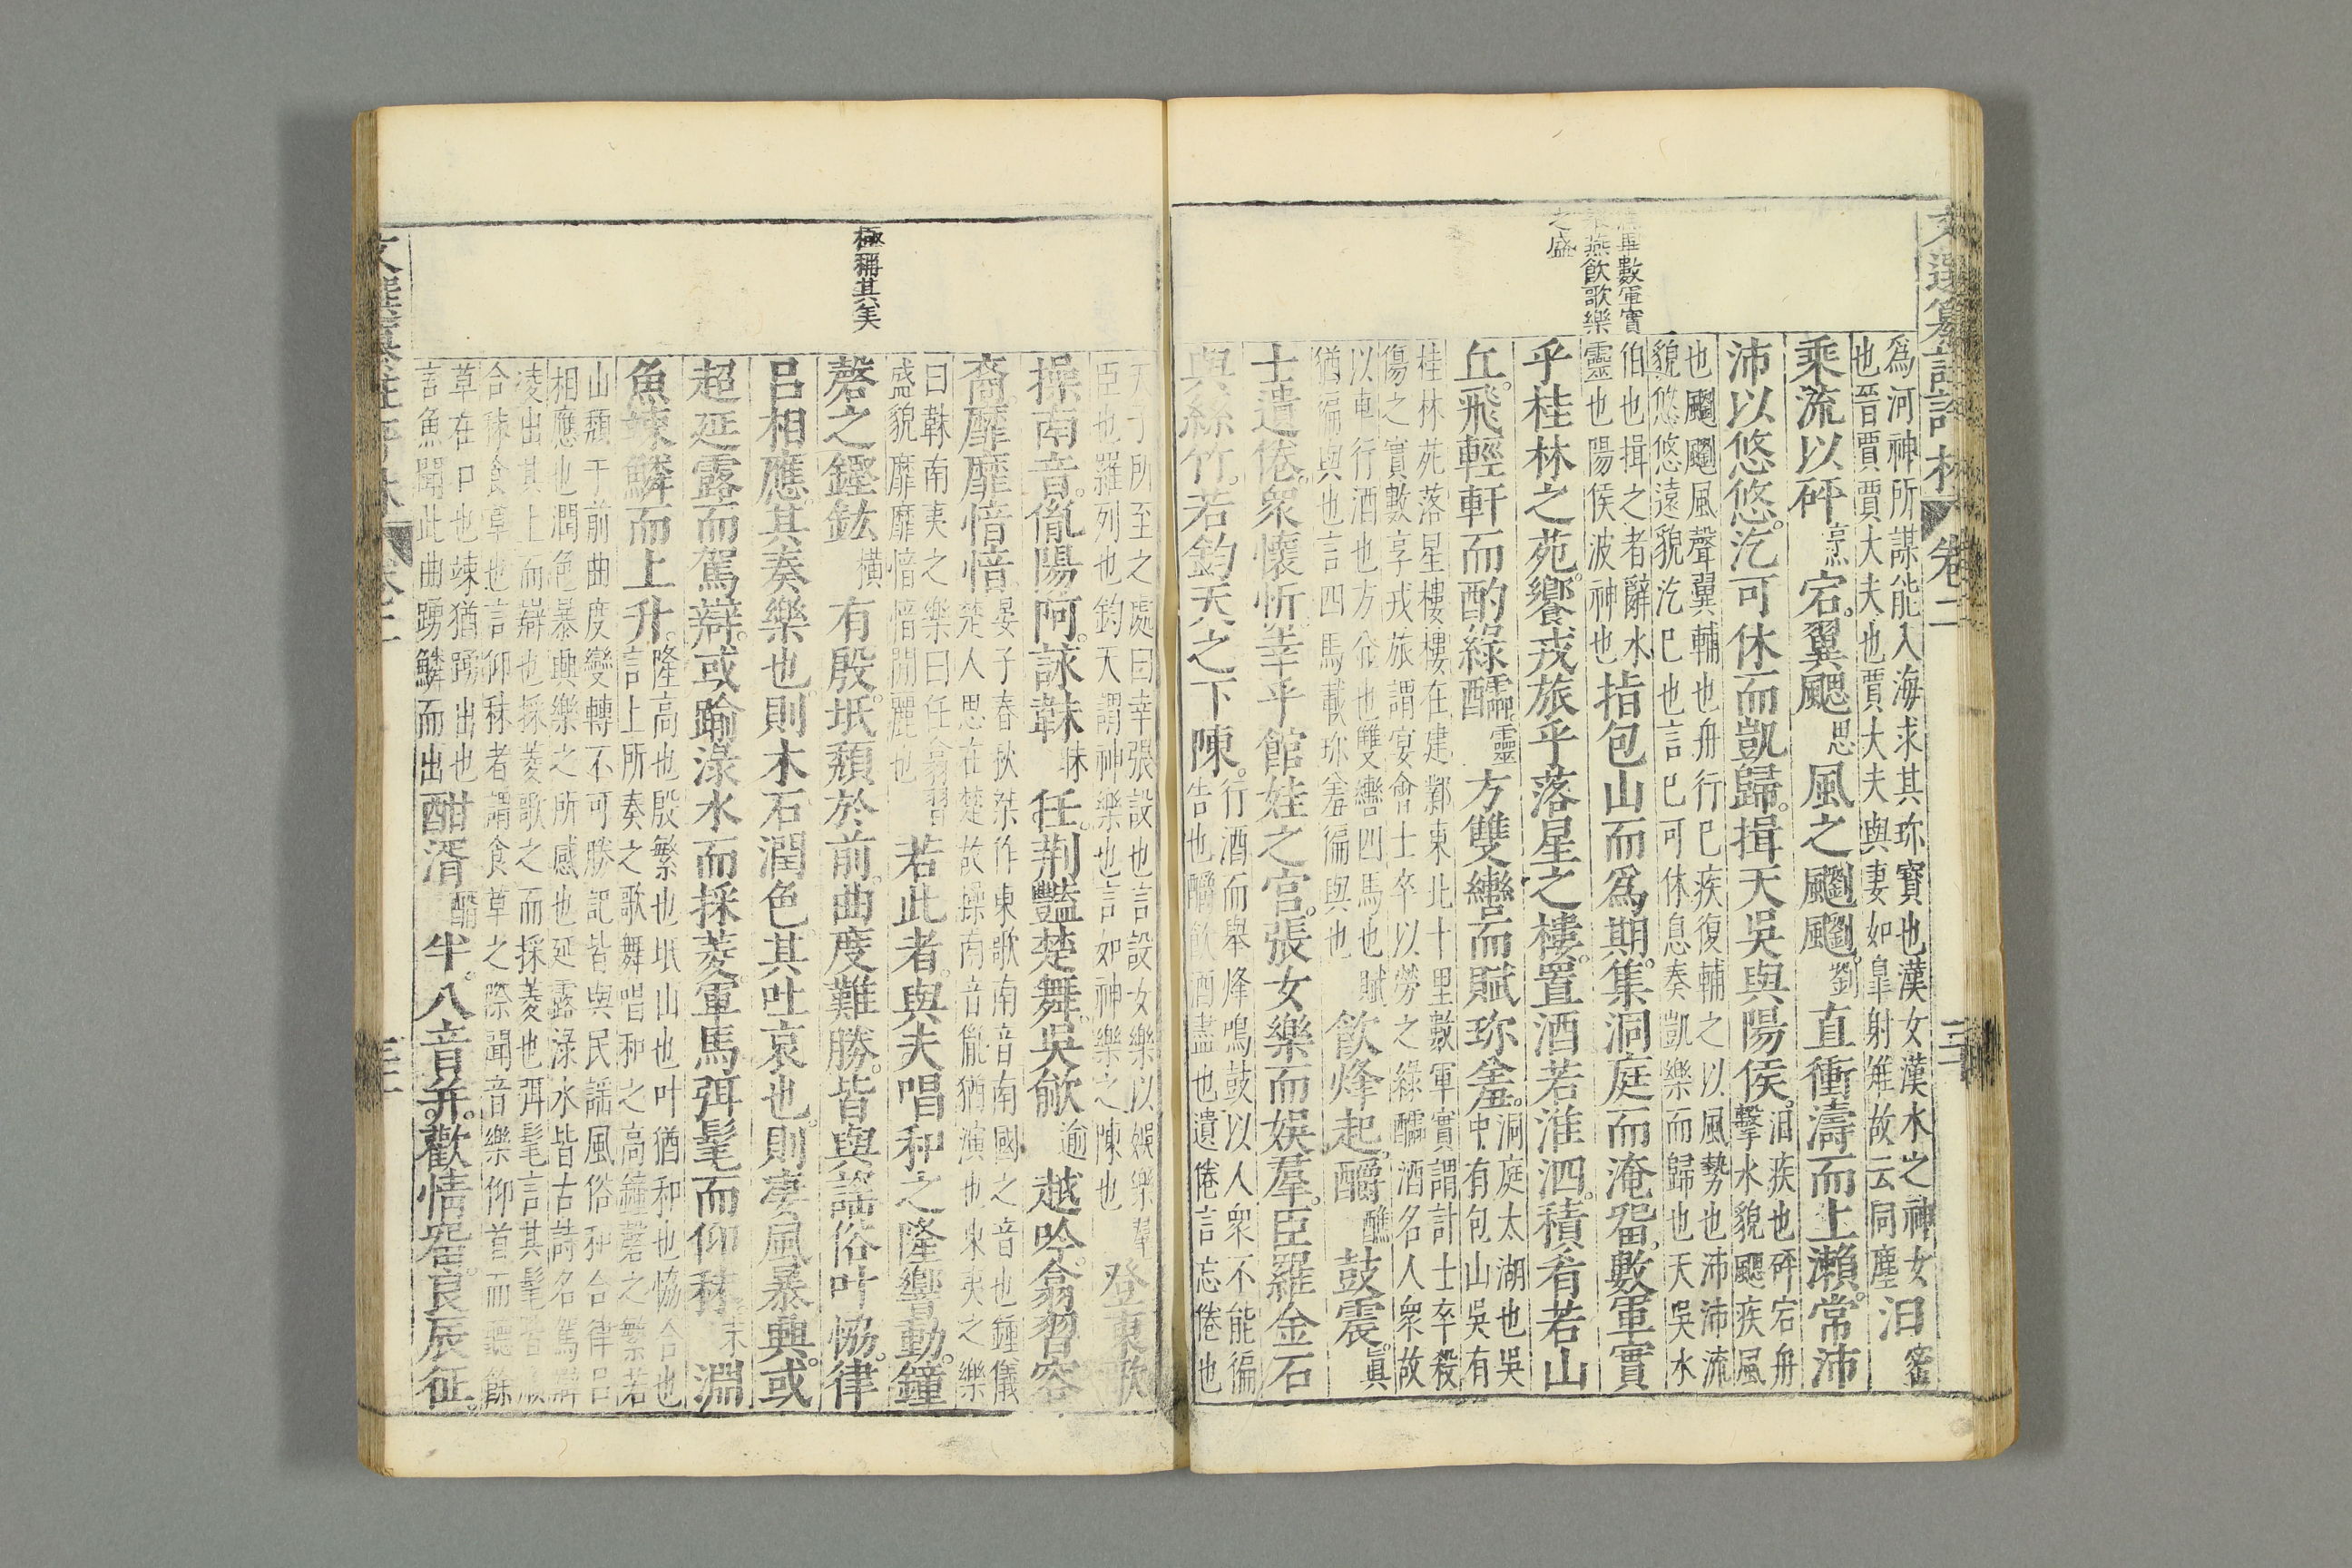 文選纂註評林 卷二
爲河神所謀能入海求其珎寳也漢女漢水之神女汨密
也晉賈賈大夫也賈大夫與妻如臯射雉故云同塵
乘流以砰烹宕。翼颸思風之飂飂。劉直衝濤而上瀨。常沛
沛以悠悠。汔可休而凱歸。揖天吳與陽侯。汨疾也砰宕舟
擊水貌颸疾風
也飂飂風聲翼輔也舟行巳疾復輔之以風勢也沛沛流
貌悠悠遠貌汔巳也言巳可休息奏凱樂而歸也天吳水
伯也揖之者辭水
靈也陽侯波神也
指包山而爲期。集洞庭而淹留。數軍實
乎桂林之苑。饗戎旅乎落星之樓。置酒若淮泗。積肴若山
丘。飛輕軒而酌綠醽。靈方雙轡而賦珎羞。洞庭太湖也吳
中有包山吳有
桂林苑落星樓樓在建鄴東北十里數軍實謂計士卒殺
傷之實數享戎旅謂宴會士卒以勞之綠醽酒名人衆故
以車行酒也方並也雙轡四馬也賦
猶徧與也言四馬載珎羞徧與也
飲烽起。釂醮鼓震。眞
士遺倦。衆懷忻幸乎館娃之宮。張女樂而娛羣。臣羅金石
與絲竹。若鈞天之下陳。行酒而舉烽鳴鼓以人衆不能徧
告也釂飲酒盡也遺倦言忘倦也
軍數軍實
燕飮歌樂
之盛
天子所至之處曰幸張設也言設女樂以娛樂羣
臣也羅列也鈞天謂神樂也言如神樂之陳也
登東歌
操南音。胤陽阿。詠韎昧任。荆豔楚舞。吳歈逾越吟。翕習容
裔。靡靡愔愔。晏子春秋桀作東歌南音南國之音也鍾儀
楚人思在楚故操南音胤猶演也東夷之樂
曰韎南夷之樂曰任翕習
盛貌靡靡愔愔閒麗也
若此者。與夫唱和之隆響動。鐘
磬之鏗鈜橫有殷。坻頽於前。曲度難勝。皆與謡俗叶恊。律
呂相應。其奏樂也。則木石潤色。其吐哀也。則凄風暴興。或
超延露而駕辯。或踰淥水而採菱。軍馬弭髦而仰秣。末淵
魚竦鱗而上升。隆高也殷繁也坻山也叶猶和也恊合也
言上所奏之歌舞唱和之高鐘磬之繁若
山頽于前曲度變轉不可勝記皆與民謡風俗和合律呂
相應也潤色暴興樂之所感也延露淥水皆古詩名駕辯
淩出其上而辯也採菱歌之而採菱也弭髦言其髦
合秣食草也言仰秣者謂食草之際聞音樂仰首而聽餘
草在口也竦猶踴出也
言魚聞此曲踴鱗而出
酣湑醑半。八音并。歡情留。良辰征。
極稱其美